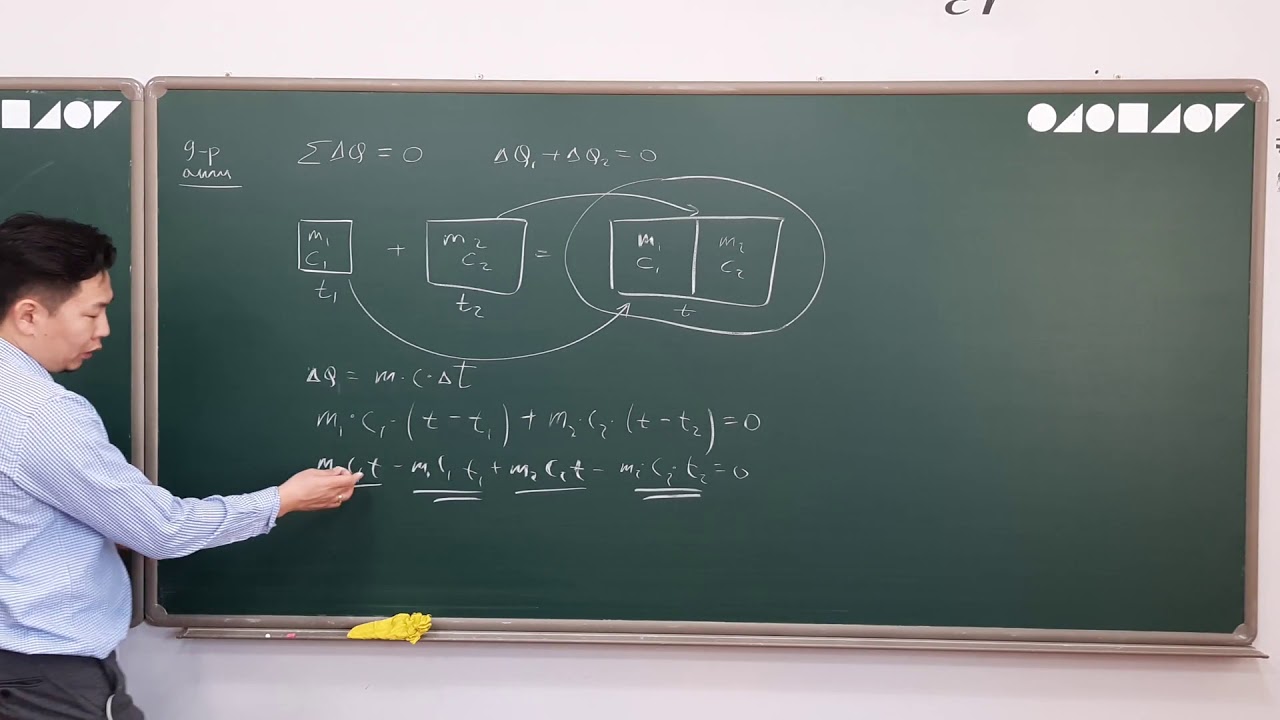 9-р
анги
∑ΔQ = 0 ΔQ₁ + ΔQ₂ = 0
m₁ + m₂ = m₁ m₂
c₁ c₂ c₁ c₂
t₁ t₂ t
ΔQ = m·c·Δt
m₁·c₁·(t − t₁) + m₂·c₂·(t − t₂) = 0
m₁c₁t − m₁c₁t₁ + m₂c₂t − m₂·c₂·t₂ = 0